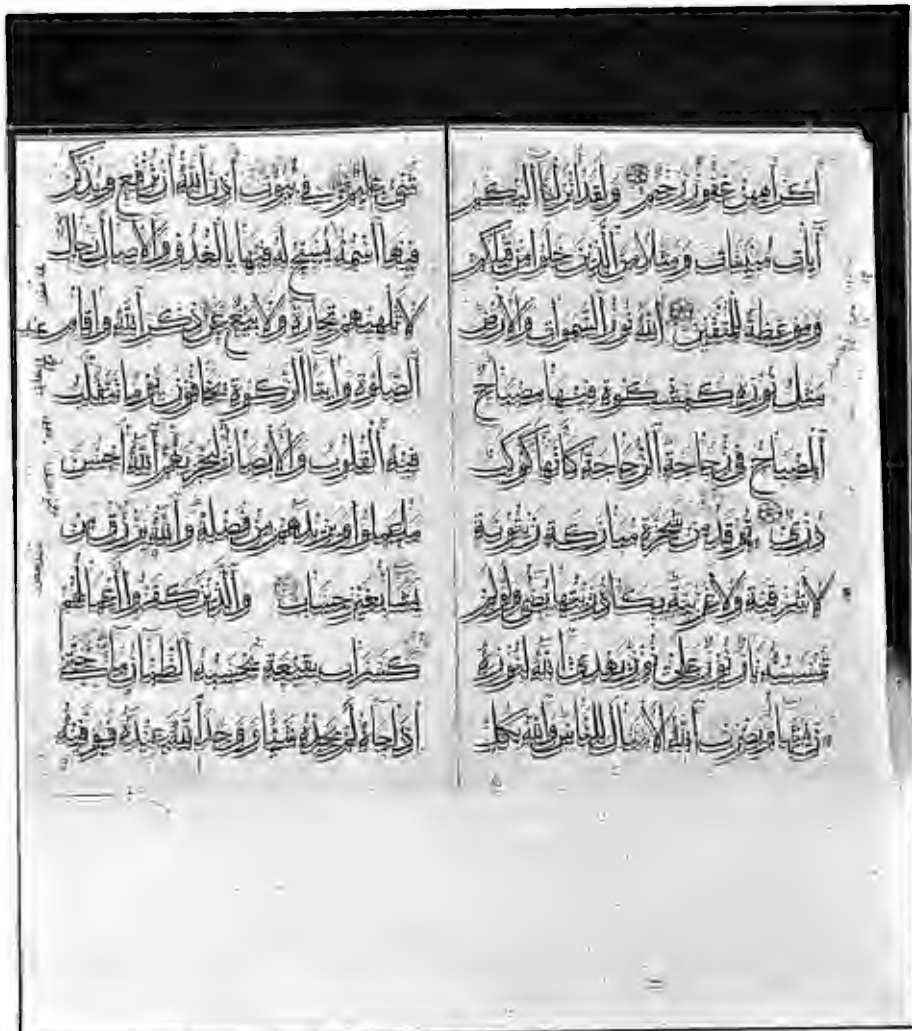 أكراههن غفور رحيم ولقد أنزلنا اليكم
آيات مبينات ومثلا من الذين خلوا من قبلكم
وموعظة للمتقين الله نور السموات والأرض
مثل نوره كمشكوة فيها مصباح
المصباح في زجاجة الزجاجة كأنها كوكب
دري يوقد من شجرة مباركة زيتونة
لا شرقية ولا غربية يكاد زيتها يضئ ولو لم
تمسسه نار نور على نور يهدي الله لنوره
من يشا ويضرب الله الأمثال للناس والله بكل
شئ عليم في بيوت أذن الله أن ترفع ويذكر
فيها اسمه يسبح له فيها بالغدو والآصال رجال
لا تلهيهم تجارة ولا بيع عن ذكر الله وإقام
الصلوة وإيتا الزكوة يخافون يوما تتقلب
فيه القلوب والأبصار ليجزيهم الله أحسن
ما عملوا ويزيدهم من فضله والله يرزق من
يشا بغير حساب والذين كفروا أعمالهم
كسراب بقيعة يحسبه الظمآن ما حتى
إذا جاه لم يجده شيئا ووجد الله عنده فوفيه